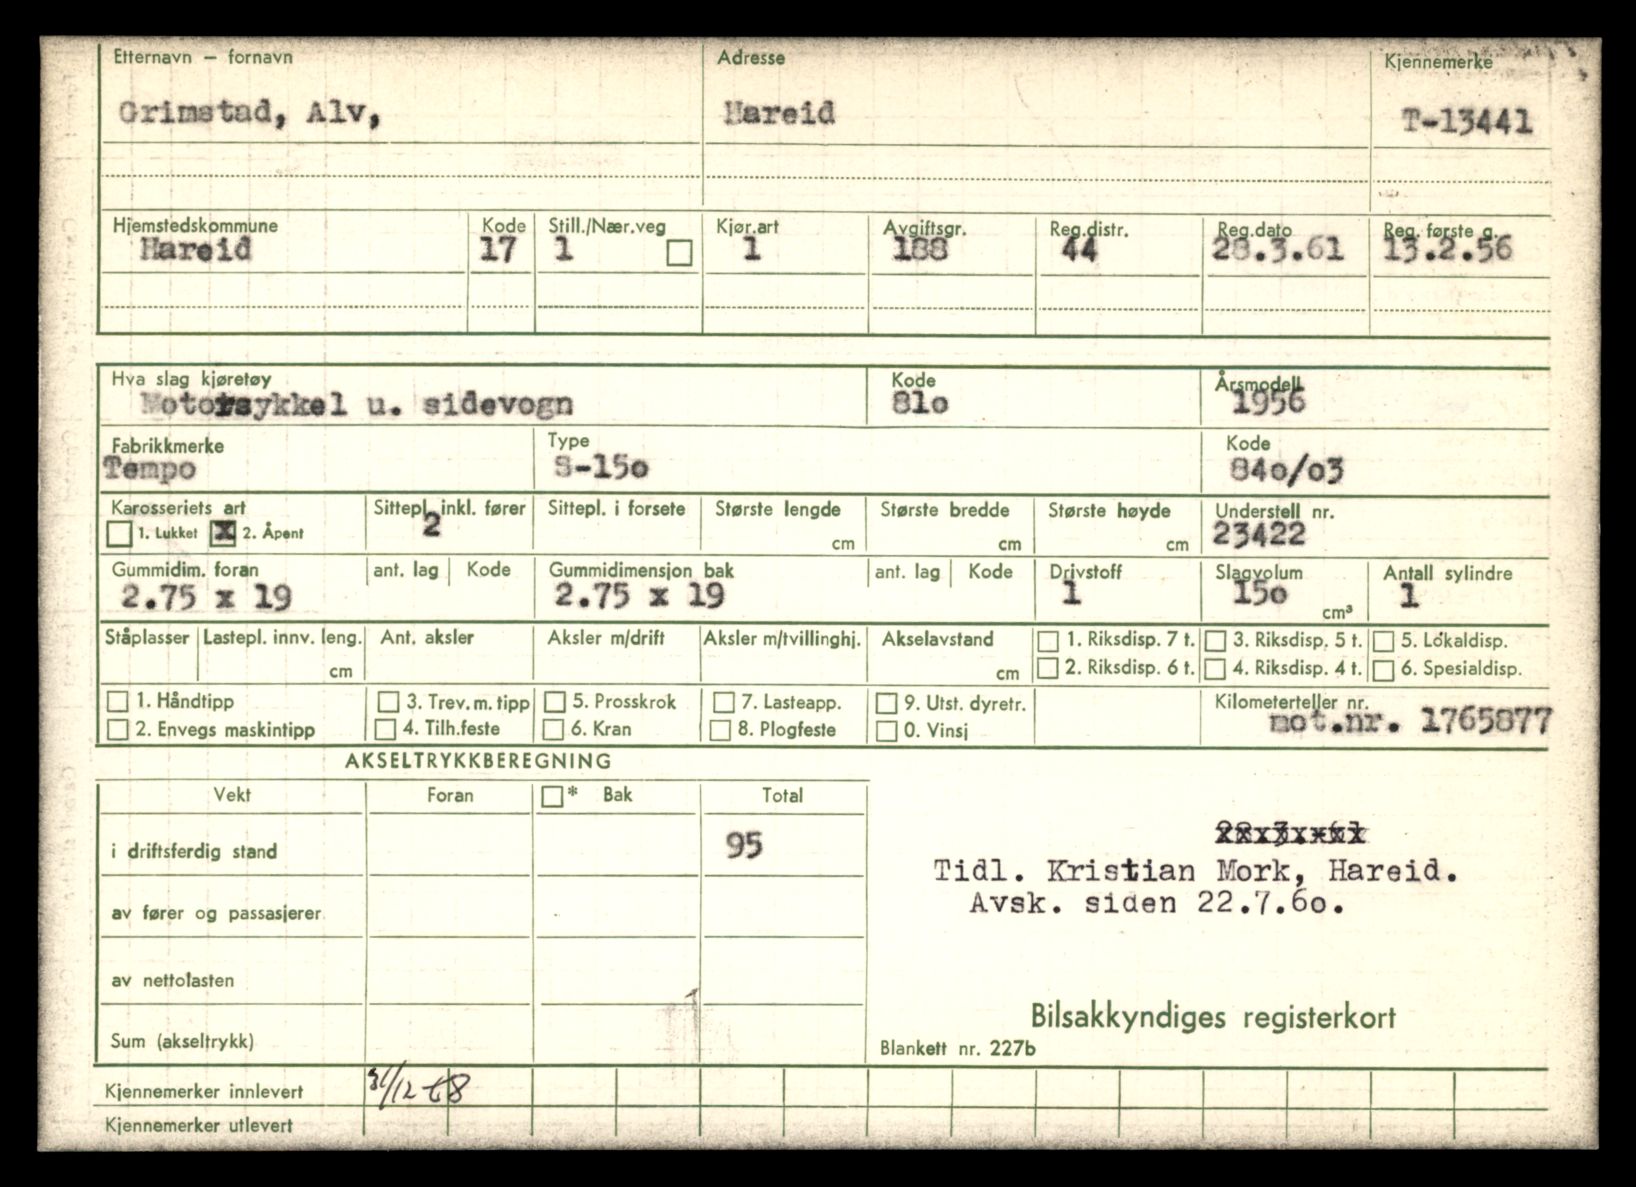 Etternavn – fornavn Adresse Kjennemerke
Grimstad, Alv, Hareid T-13441
Hjemstedskommune Kode Still./Nær.veg Kjør.art Avgiftsgr. Reg.distr. Reg.dato Reg. første g.
Hareid 17 1 1 188 44 28.3.61 13.2.56
Hva slag kjøretøy Kode Årsmodell
Motorsykkel u. sidevogn 81o 1956
Fabrikkmerke Type Kode
Tempo S-15o 84o/o3
Karosseriets art Sittepl. inkl. fører Sittepl. i forsete Største lengde Største bredde Største høyde Understell nr.
1. Lukket X 2. Åpent 2 cm cm cm 23422
Gummidim. foran ant. lag Kode Gummidimensjon bak ant. lag Kode Drivstoff Slagvolum Antall sylindre
2.75 x 19 2.75 x 19 1 15o cm³ 1
Ståplasser Lastepl. innv. leng. Ant. aksler Aksler m/drift Aksler m/tvillinghj. Akselavstand 1. Riksdisp. 7 t. 3. Riksdisp. 5 t. 5. Lokaldisp.
cm cm 2. Riksdisp. 6 t. 4. Riksdisp. 4 t. 6. Spesialdisp.
1. Håndtipp 3. Trev.m.tipp 5. Prosskrok 7. Lasteapp. 9. Utst. dyretr. Kilometerteller nr.
2. Envegs maskintipp 4. Tilh.feste 6. Kran 8. Plogfeste 0. Vinsj mot.nr. 1765877
AKSELTRYKKBEREGNING
Vekt Foran * Bak Total
i driftsferdig stand 95
Tidl. Kristian Mork, Hareid.
Avsk. siden 22.7.6o.
av fører og passasjerer
av nettolasten
Sum (akseltrykk)
Bilsakkyndiges registerkort
Blankett nr. 227b
Kjennemerker innlevert 31/12-68
Kjennemerker utlevert